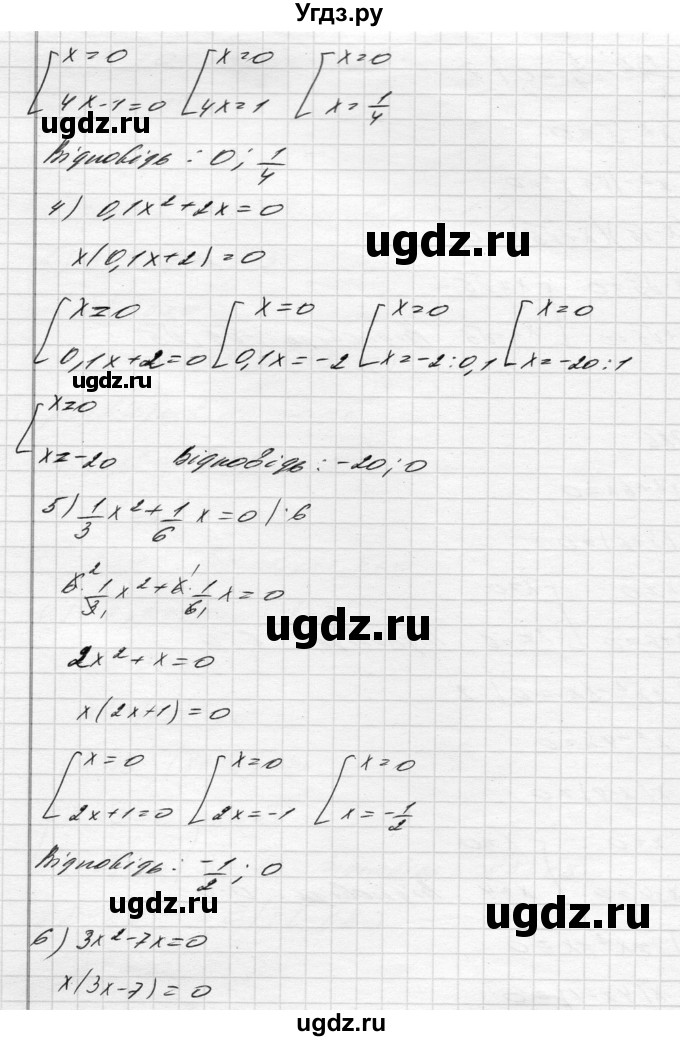 Угдз.ру
[ x=0 [ x=0 [ x=0
4x-1=0 4x=1 x=1/4
ugdz.ru
Відповідь: 0; 1/4
4) 0,1x²+2x=0
ugdz.ru
x(0,1x+2)=0
[ x=0 [ x=0 [ x=0 [ x=0
0,1x+2=0 0,1x=-2 x=-2:0,1 x=-20:1
ugdz.ru
[ x=0
x=-20 Відповідь: -20; 0
5) 1/3 x²+1/6 x=0 |·6
6·1/3 x²+6·1/6 x=0
ugdz.ru
2x²+x=0
x(2x+1)=0
[ x=0 [ x=0 [ x=0
2x+1=0 2x=-1 x=-1/2
Відповідь: -1/2; 0
ugdz.ru
ugdz.ru
6) 3x²-7x=0
x(3x-7)=0
ugdz.ru